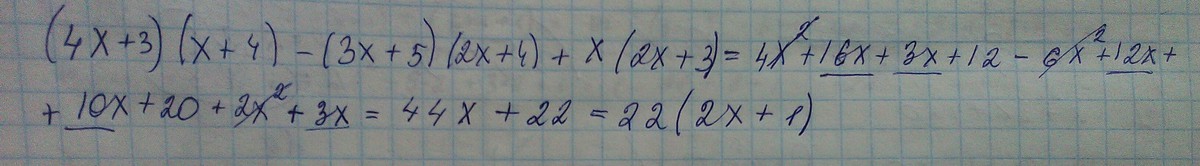 (4x+3)(x+4)-(3x+5)(2x+4)+x(2x+3)=4x²+16x+3x+12-6x²+12x+
+10x+20+2x²+3x=44x+22=22(2x+1)